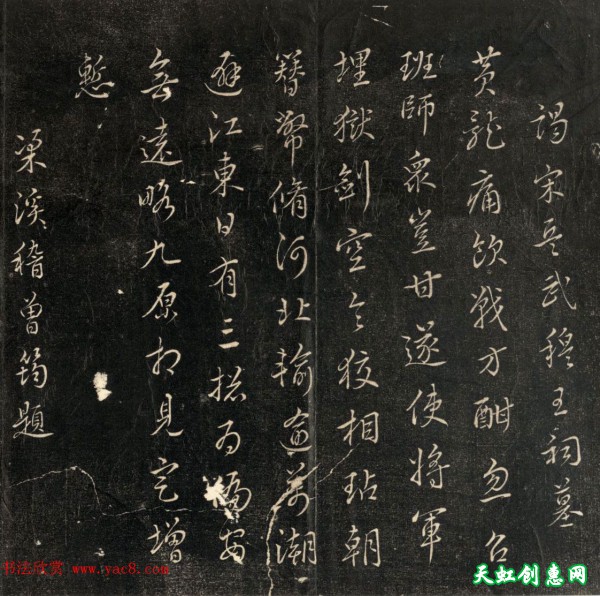 謁宋岳武穆王祠墓
黃龍痛飲戰方酣忽召
班師衆豈甘遂使將軍
埋獄劍空令狡相玷朝
簪幣脩河北輸逾萬潮
避江東日有三揔為偏安
無遠略九原相見定增
慙
梁溪稽曾筠題
书法欣赏 www.yac8.com
天虹创意网